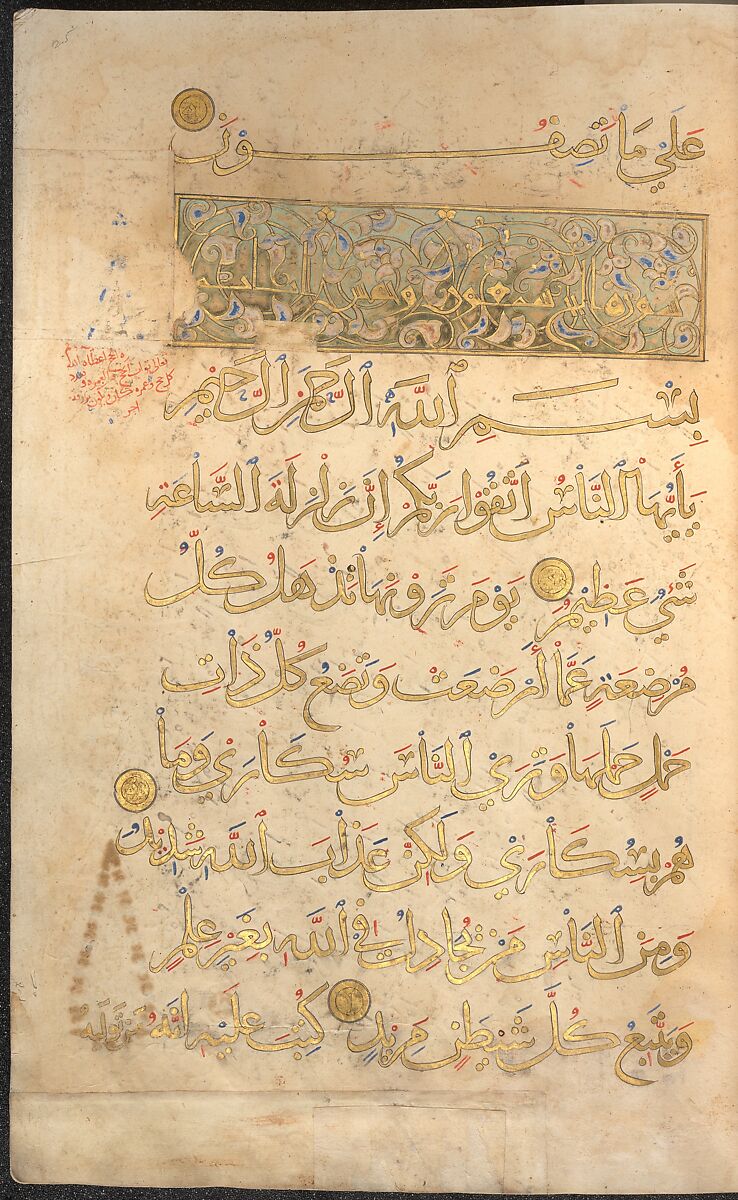 عَلَىٰ مَا تَصِفُونَ
سورة الحج سبعون وخمس آيات
بِسْمِ ٱللَّهِ ٱلرَّحْمَٰنِ ٱلرَّحِيمِ
يَٰأَيُّهَا ٱلنَّاسُ ٱتَّقُوا رَبَّكُمْ إِنَّ زَلْزَلَةَ ٱلسَّاعَةِ
شَيْءٌ عَظِيمٌ يَوْمَ تَرَوْنَهَا تَذْهَلُ كُلُّ
مُرْضِعَةٍ عَمَّا أَرْضَعَتْ وَتَضَعُ كُلُّ ذَاتِ
حَمْلٍ حَمْلَهَا وَتَرَى ٱلنَّاسَ سُكَارَىٰ وَمَا
هُمْ بِسُكَارَىٰ وَلَٰكِنَّ عَذَابَ ٱللَّهِ شَدِيدٌ
وَمِنَ ٱلنَّاسِ مَنْ يُجَادِلُ فِي ٱللَّهِ بِغَيْرِ عِلْمٍ
وَيَتَّبِعُ كُلَّ شَيْطَٰنٍ مَرِيدٍ كُتِبَ عَلَيْهِ أَنَّهُ مَنْ تَوَلَّاهُ